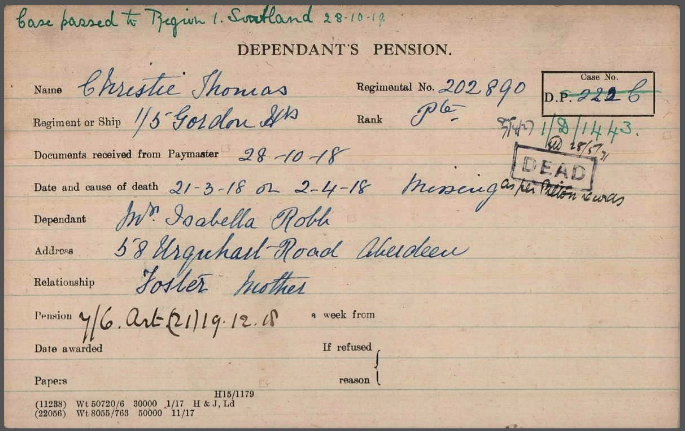 Case passed to Region 1. Scotland 28-10-19
DEPENDANT'S PENSION.
Name Christie Thomas Regimental No. 202890 Case No.
D.P. 222 C
Regiment or Ship 1/5 Gordon Hrs Rank Pte
1/D/1443.
Documents received from Paymaster 28-10-18
DEAD
Date and cause of death 21-3-18 or 2-4-18 Missing as per
Dependant Mrs. Isabella Robb
Address 58 Urquhart Road Aberdeen
Relationship Foster Mother
Pension 7/6. Art (21) 19.12.18 a week from
Date awarded If refused
Papers reason
H15/1179
(11238) Wt 50720/6 30000 1/17 H & J, Ld
(22056) Wt 8055/763 50000 11/17